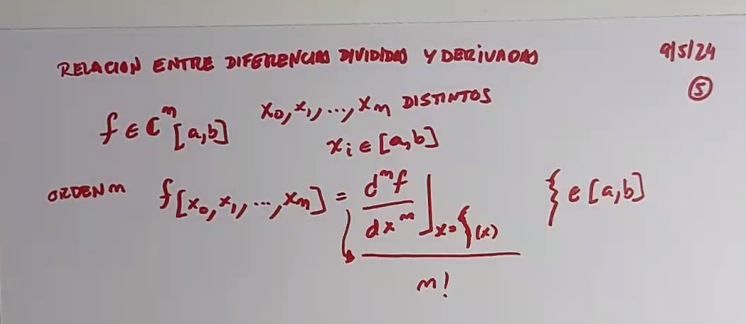 RELACION ENTRE DIFERENCIAS DIVIDIDAS Y DERIVADAS 9/5/24
⑤
f ∈ C^m [a,b] x₀, x₁, ..., x_m DISTINTOS
x_i ∈ [a,b]
ORDEN m f[x₀, x₁, ..., x_m] = d^m f / dx^m |_{x=ξ(x)} ξ ∈ [a,b]
m!